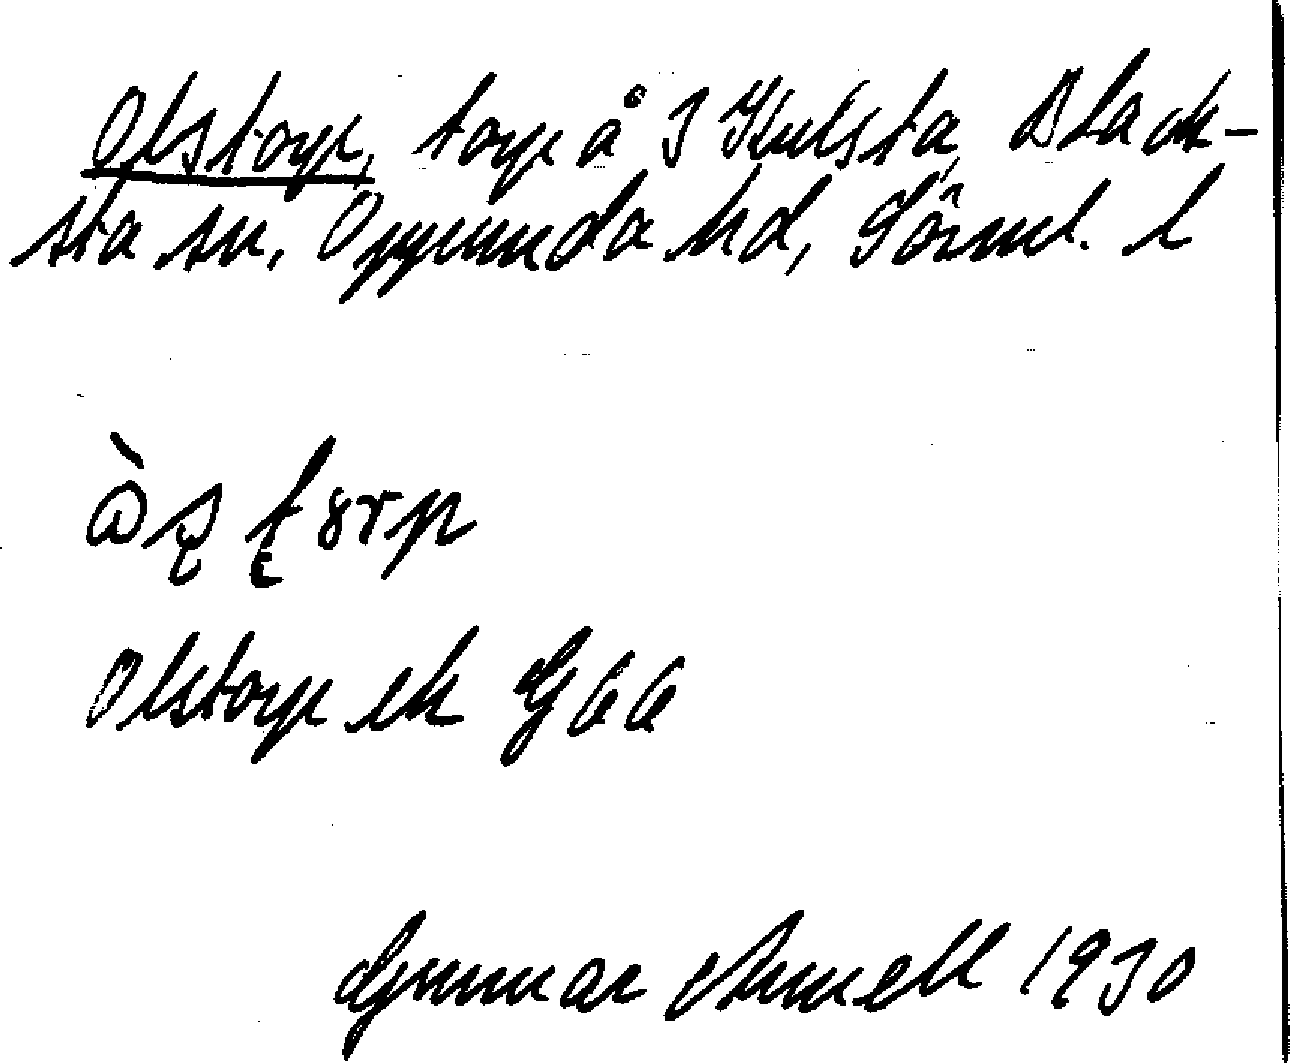 Olstorp, torp å 3 Hulsta, Black-
sta sn, Oppunda hd, Sörml. l
Olstorp ek G 66
Gunnar Amell 1930